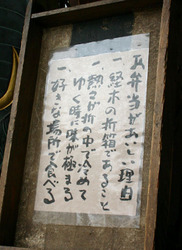 弁当がおいしい理由
一、経木の折箱であること
一、熱さが折の中で冷めて
ゆく時に味が極まる
一、好きな場所で食べる